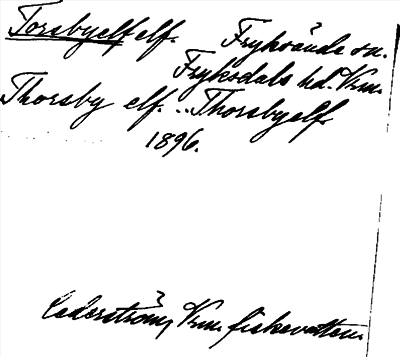 Torsbyelf elf. Fryksände sn.
Fryksdals hd. Vrm.
Thorsby elf. .. Thorsbyelf.
1896.
Cederström, Vrm. fiskevatten.